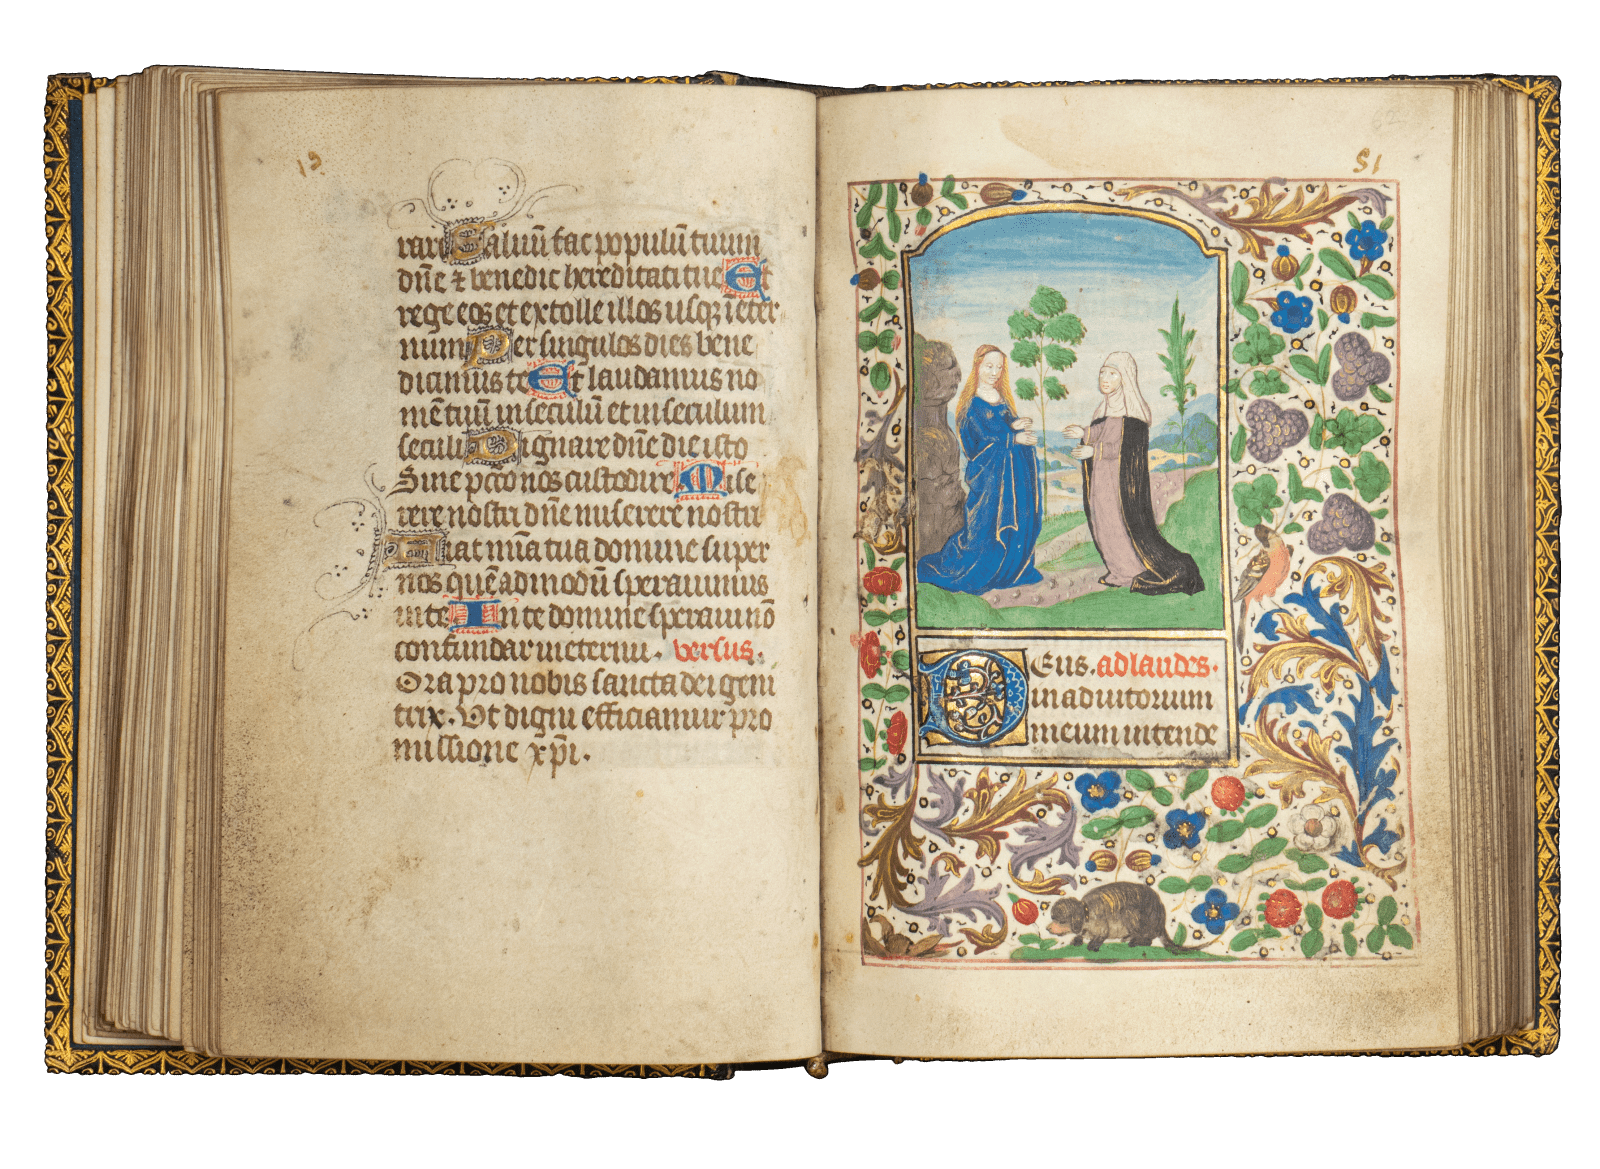 rare Saluū fac populū tuum
dn̄e ⁊ benedic hereditati tue Et
rege eos et extolle illos usq̄ ī eter
num Per singulos dies bene
dicimus te Et laudamus no
mē tuū in seculū et in seculum
seculi Dignare dn̄e die isto
Sine pctō nos custodire Mise
rere nostri dn̄e miserere nostri
Fiat mīa tua domine super
nos quēadmodū speravimus
in te In te domine speravi nō
confundar in eternū. versus.
Ora pro nobis sancta dei geni
trix. Ut digni efficiamur pro
missione xp̄i.
51
DEus. ad laudes.
in adiutorium
meum intende